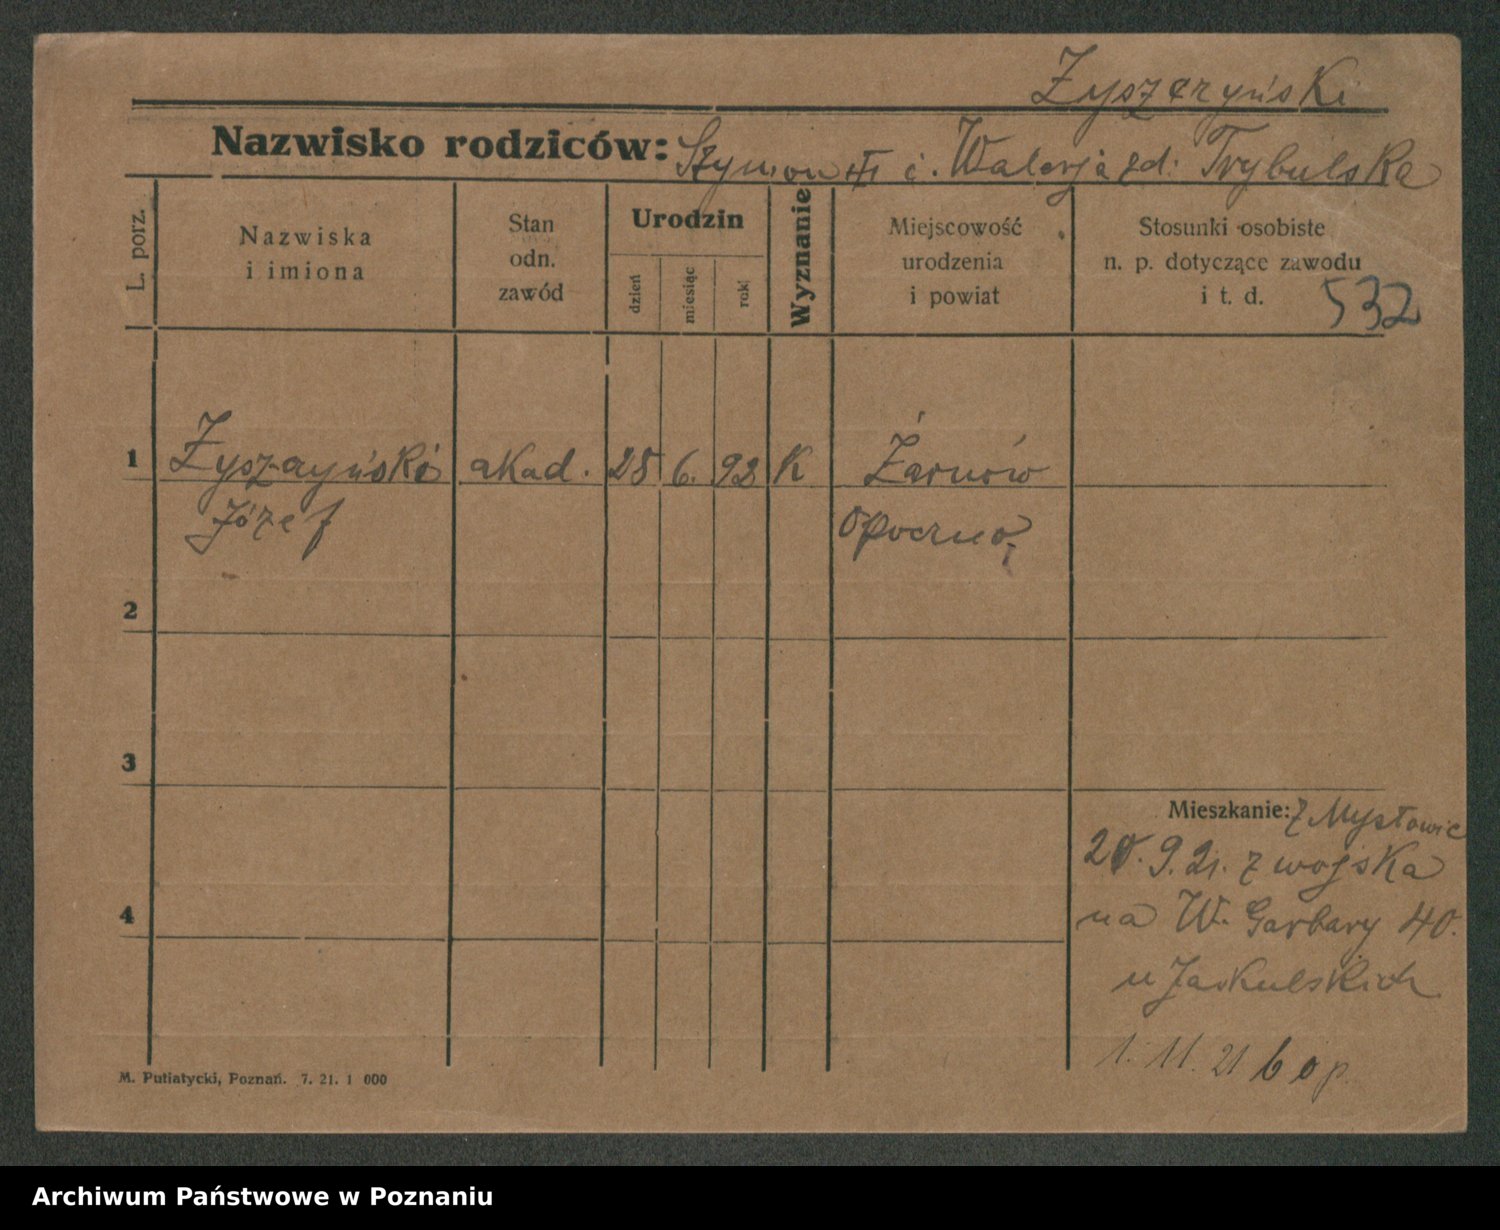 Żyszczyński
Nazwisko rodziców: Szymon i Walerja zd. Trybulska
L. porz.
Nazwiska
i imiona
Stan
odn.
zawód
Urodzin
dzień
miesiąc
rok
Wyznanie
Miejscowość
urodzenia
i powiat
Stosunki osobiste
n. p. dotyczące zawodu
i t. d.
532
1 Żyszczyński akad. 25 6. 92 K Żarnów
Józef Opoczno
2
3
Mieszkanie: z Mysłowic
20. 9. 21. z wojska
4
na W. Garbary 40.
u Jaskulskich
1. 11. 21 b o p.
M. Putiatycki, Poznań. 7. 21. 1 000
Archiwum Państwowe w Poznaniu